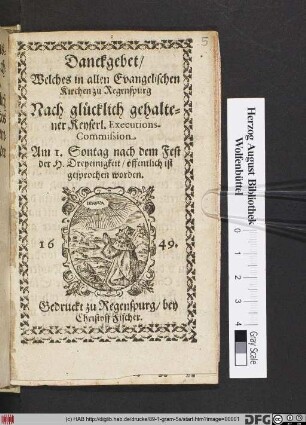 5
Danckgebet/
Welches in allen Evangelischen
Kirchen zu Regenspurg
Nach glücklich gehalte-
ner Keyserl. Executions-
Commission.
Am 1. Sontag nach dem Fest
der H. Dreyeinigkeit/ öffentlich ist
gesprochen worden.
16 49.
Gedruckt zu Regenspurg/ bey
Christoff Fischer.
Herzog August Bibliothek
Wolfenbüttel
Gray Scale
(c) HAB http://diglib.hab.de/drucke/
DFG